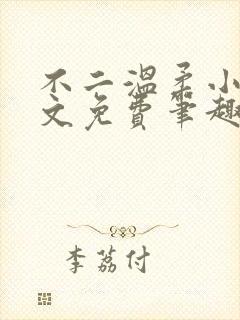 不二温柔小
文免费笔趣
李荔付